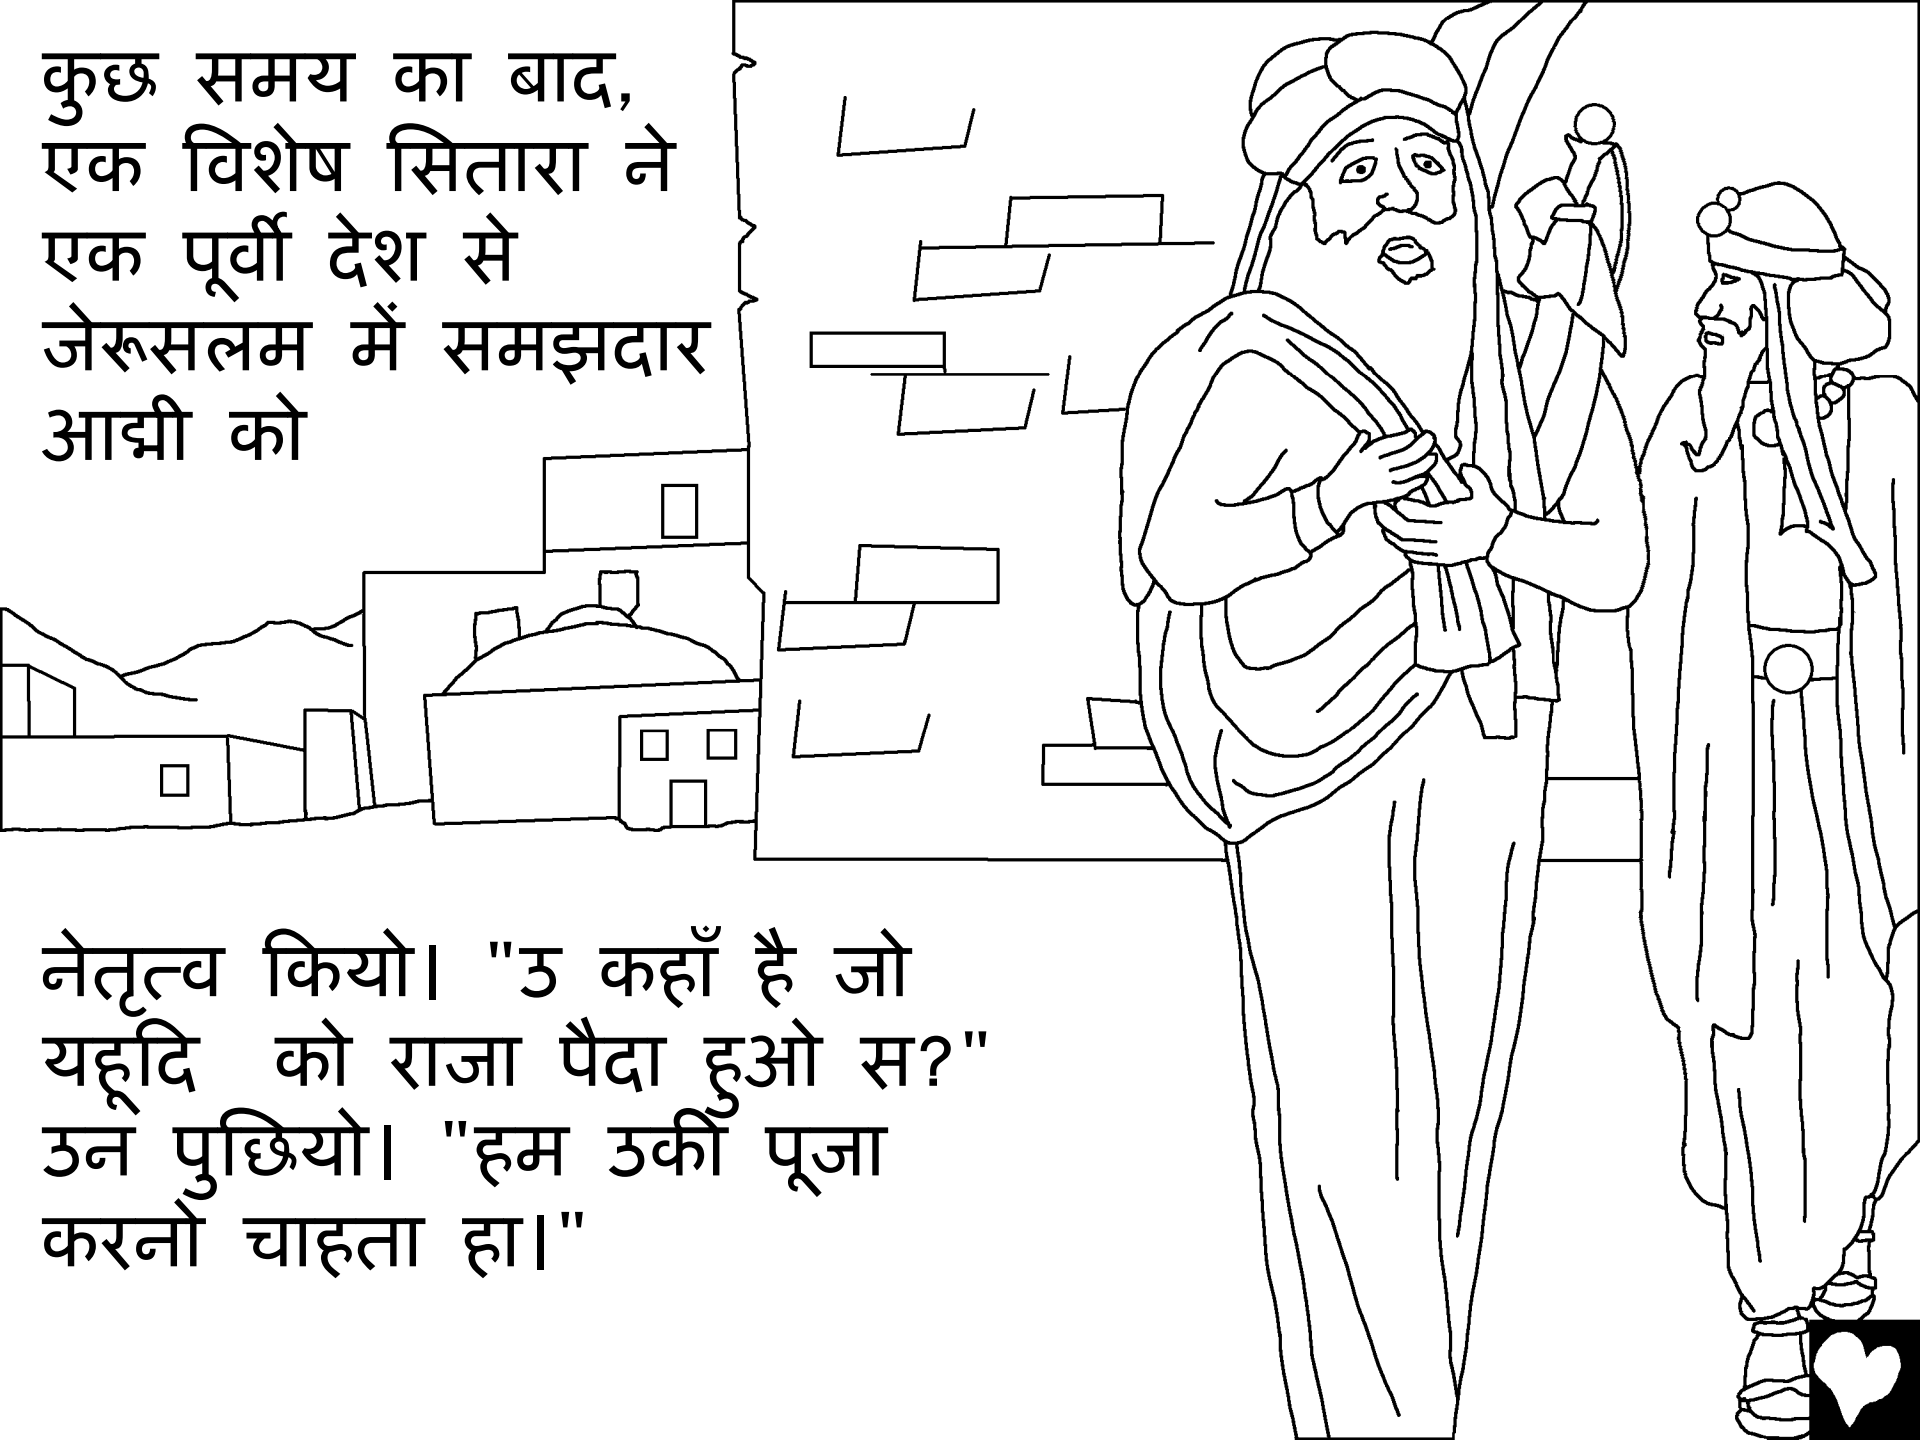 कुछ समय का बाद,
एक विशेष सितारा ने
एक पूर्वी देश से
जेरूसलम में समझदार
आद्मी को
नेतृत्व कियो। "उ कहाँ है जो
यहूदि को राजा पैदा हुओ स?"
उन पुछियो। "हम उकी पूजा
करनो चाहता हा।"